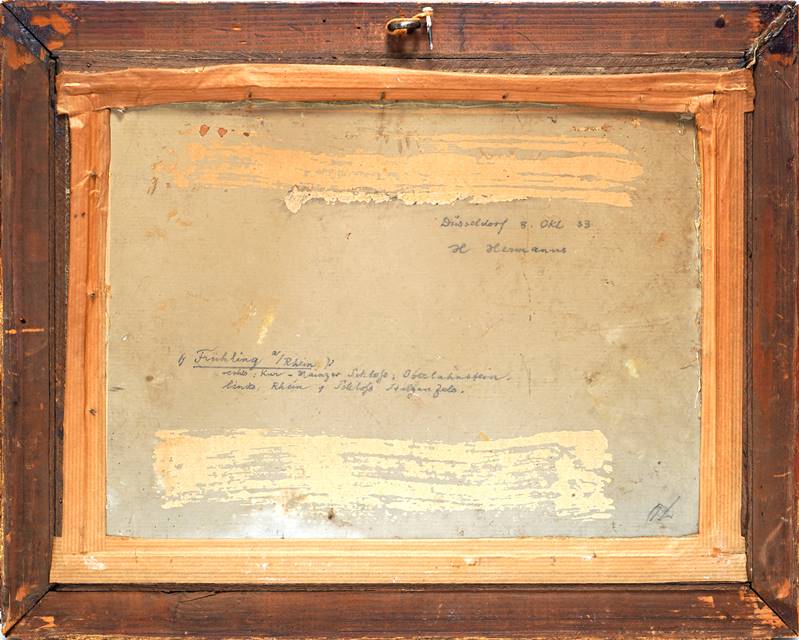 Düsseldorf 8. Okt 33
H Hermanns
Frühling a/Rhein
rechts: Kur-Mainzer Schloß, Oberlahnstein.
links. Rhein & Schloß Stolzenfels.